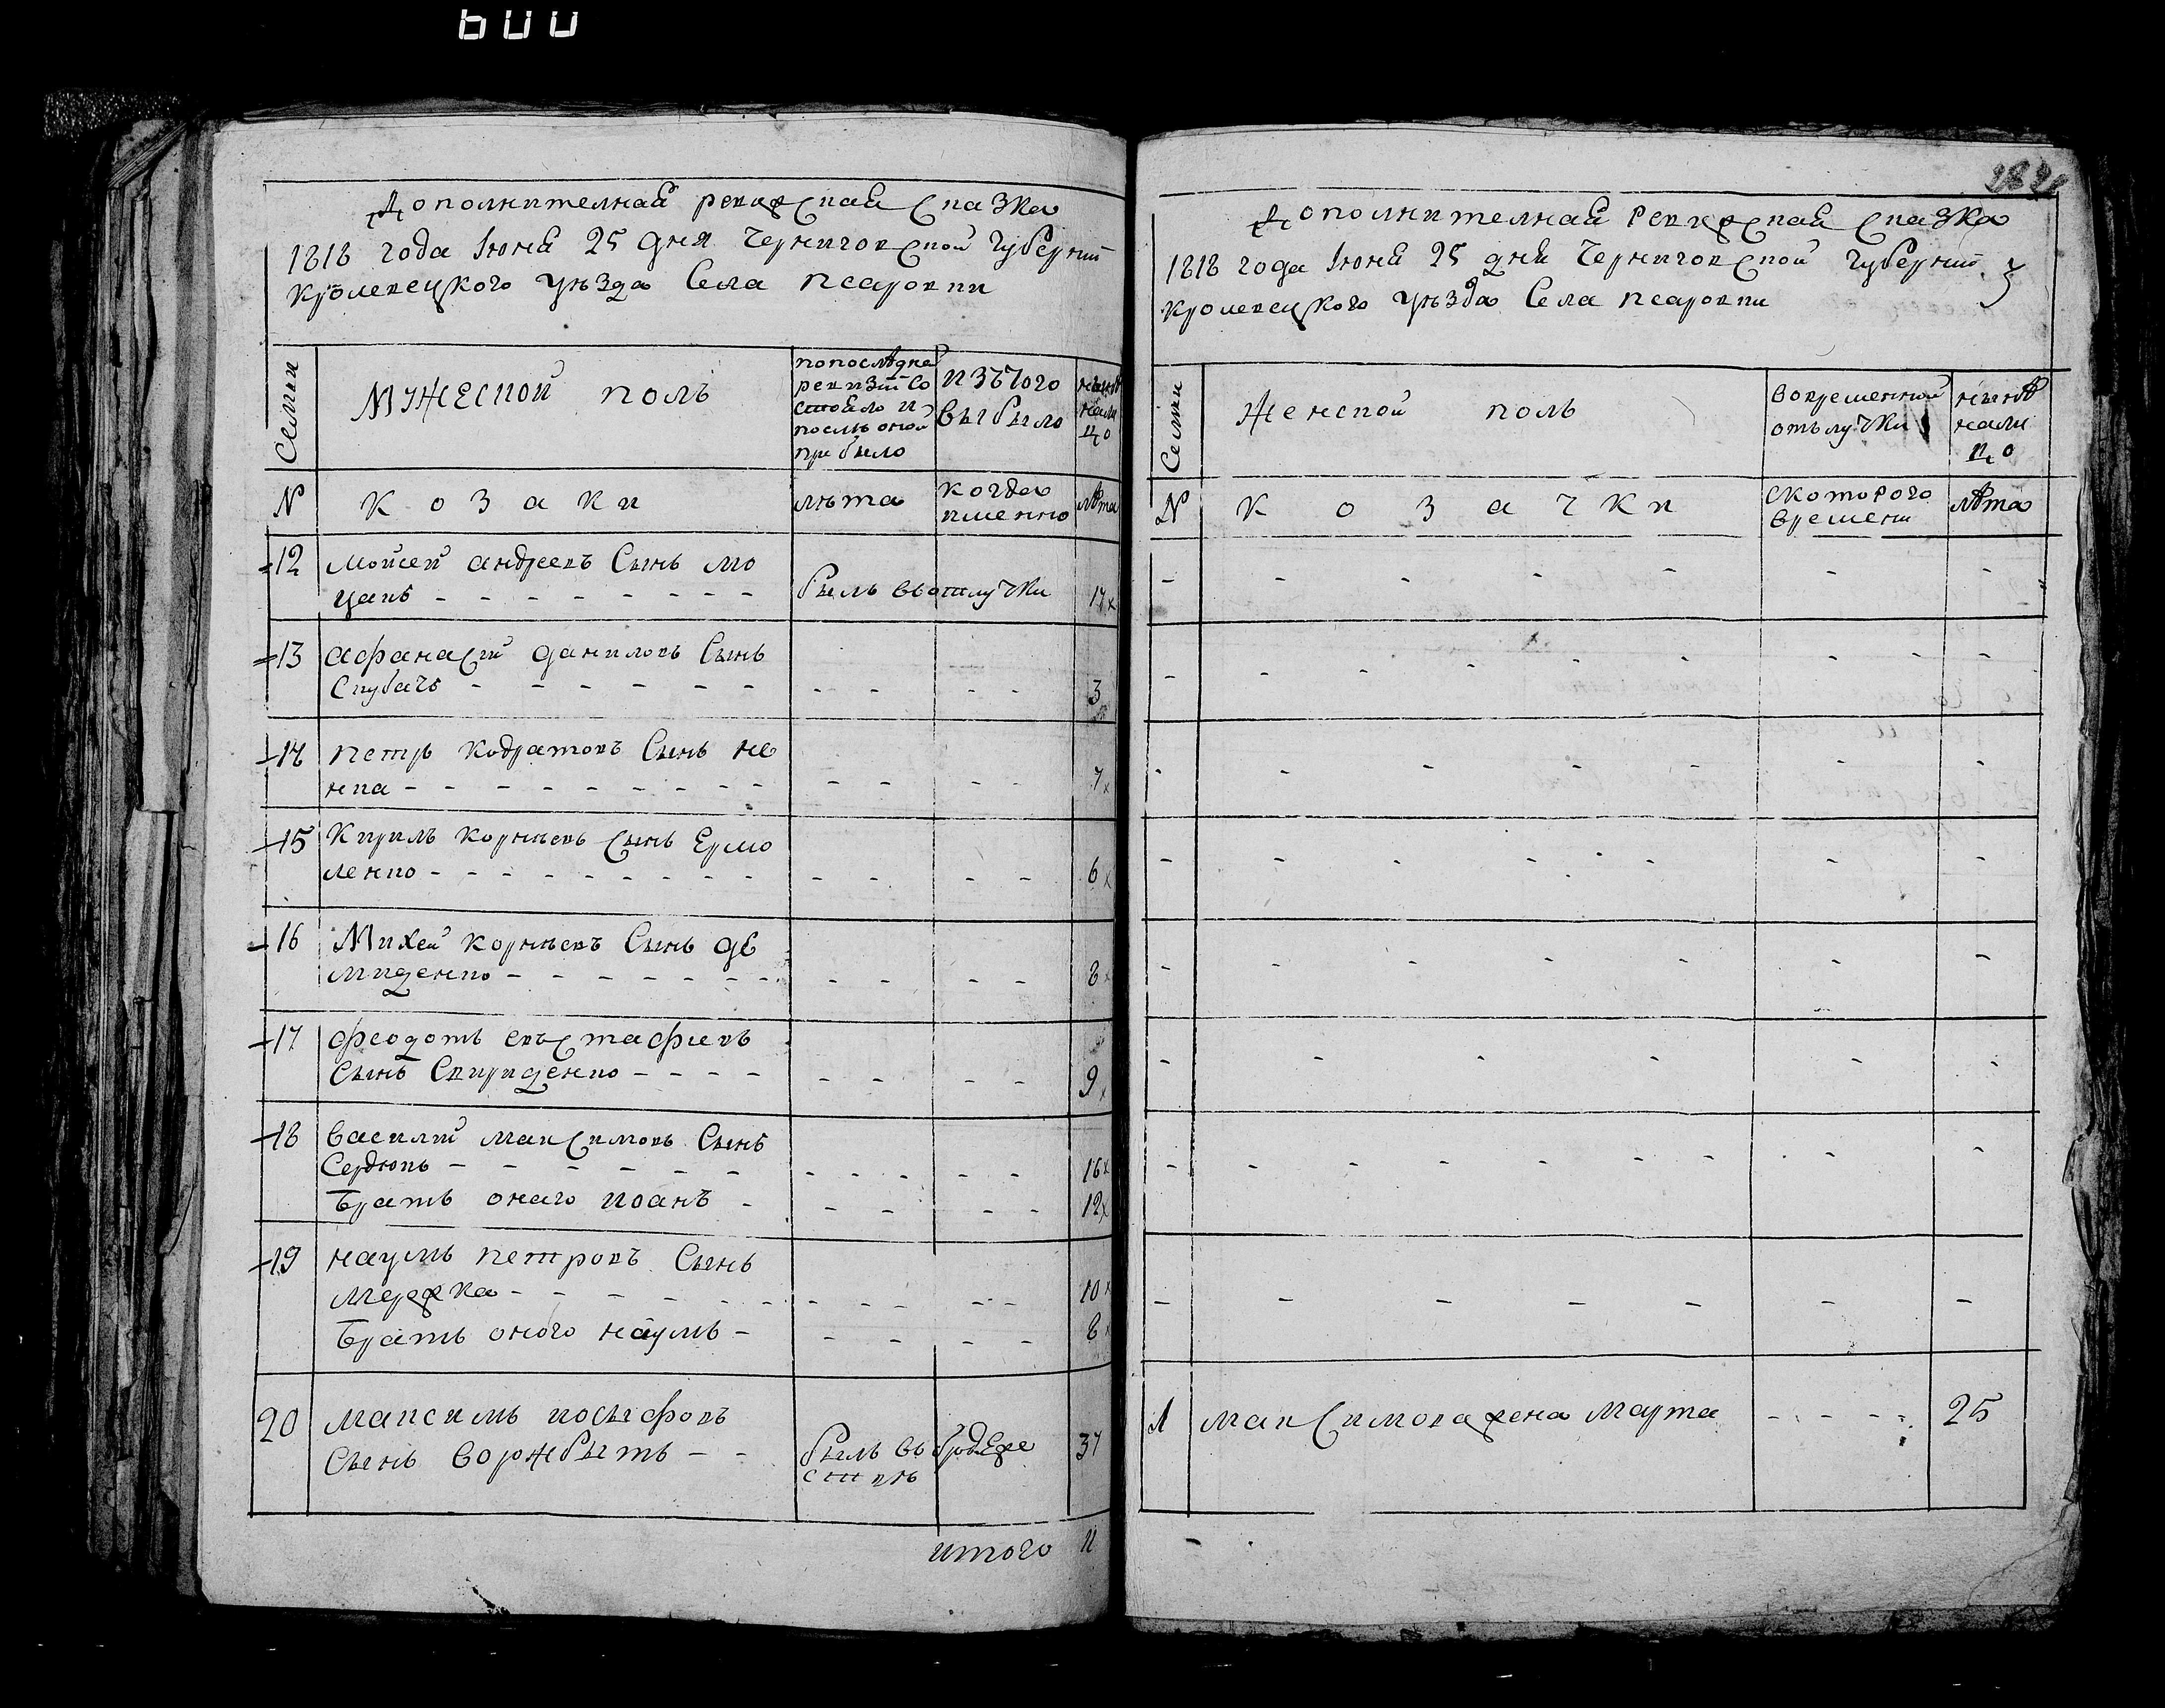 600
Дополнителнай ревизскай сказка
1818 года Июня 25 дня Черниговской губерний
кролевецкого уѣзда Села псаровки
Семьи
мужеской полъ
по последне
ревизіи со
стояло и
послѣ оной
прибыло
изътого
выбыло
нынѣ
нали
цо
N
козаки
лѣта
когда
именно
лѣта
12 Мойсей андреевъ Сынъ мо
цакъ
былъ вьотлучки
17
13 афанасій даниловъ Сынъ
Скубачъ
3
14 петръ кодратовъ Сынъ не
нка
7
15 Кирилъ корнѣевъ Сынъ Ермо
ленко
6
16 Михей корнѣевъ Сынъ де
миденко
8
17 феодотъ евъстафиевъ
Сынъ Свириденко
9
18 василій максимовъ Сынъ
Сердюкъ
16
братъ онаго иоанъ
12
19 наумъ петровъ Сынъ
Мережка
10
братъ оного наумъ
8
20 максимъ иосыфовъ
Сынъ ворожбытъ
былъ въ бродяже
ствѣ
37
итого 11
Дополнителнай ревизскай сказка
1818 года Июня 25 дня Черниговской губерний
кролевецкого уѣзда Села псаровки
Семьи
женской полъ
вовременной
отълучки
нынѣ
нали
цо
N
козачки
скоторого
времени
лѣта
1 максимова жена Марта
25